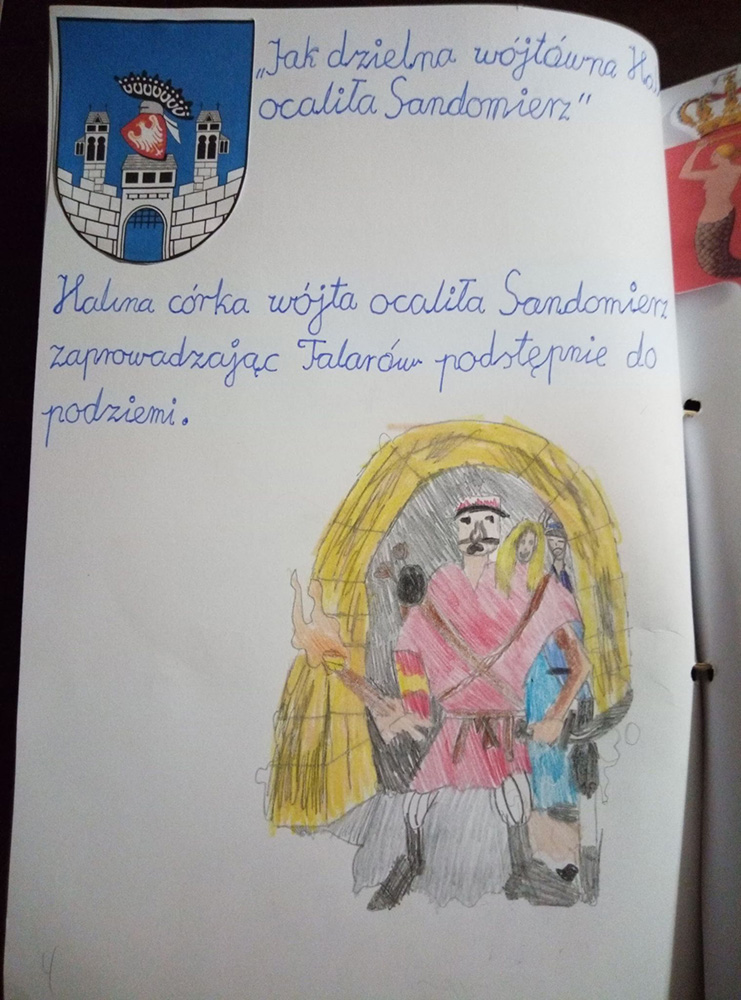 „Jak dzielna wójtówna
ocaliła Sandomierz”
Halina córka wójta ocaliła Sandomierz
zaprowadzając Talarów podstępnie do
podziemi.
4